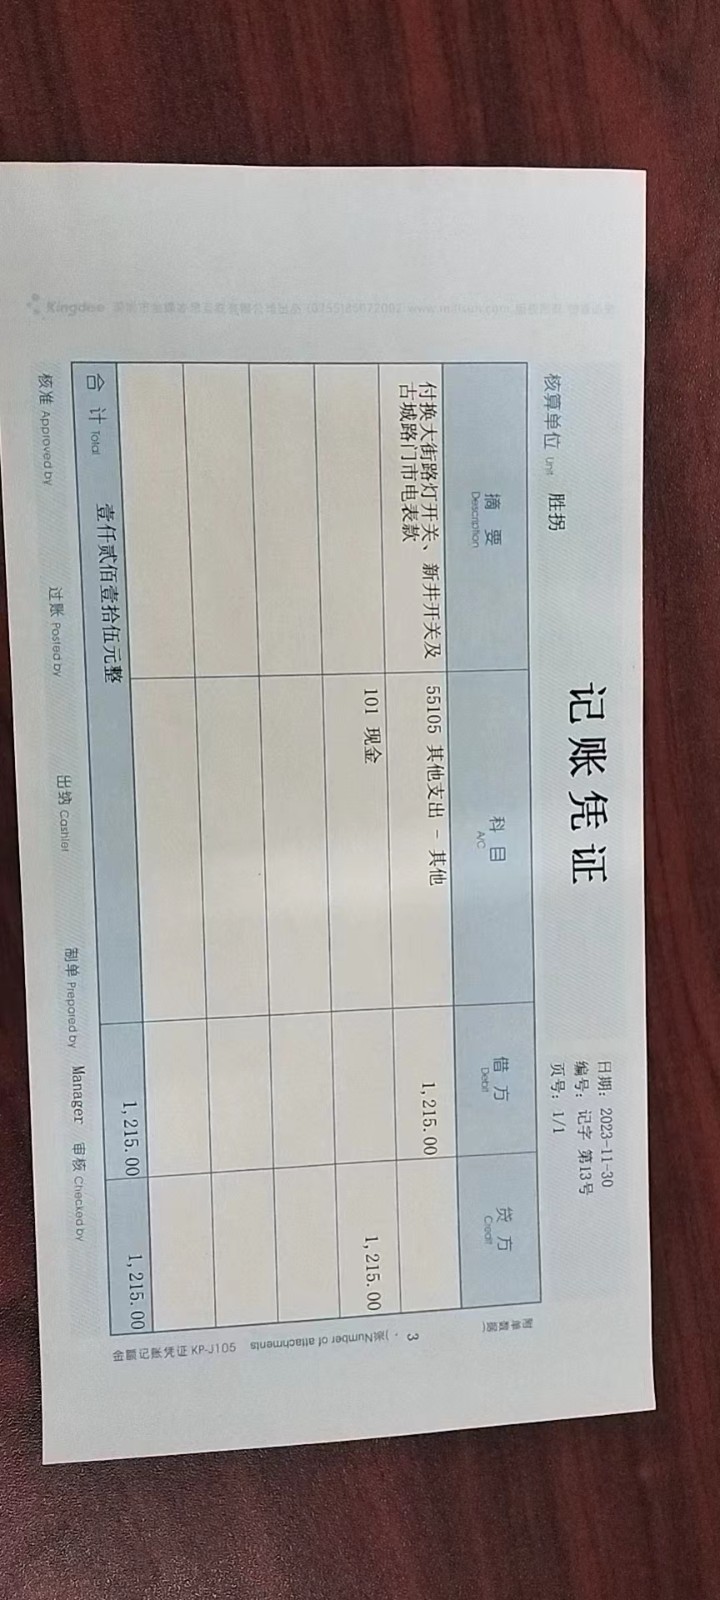 记账凭证
日期: 2023-11-30
编号: 记字 第13号
页号: 1/1
核算单位 Unit 胜拐
摘 要 Description
科 目 A/C
借 方 Debit
贷 方 Credit
附单数(据
3
张)Number of attachments
付换大街路灯开关、新井开关及
古城路门市电表款
55105 其他支出 - 其他
1,215.00
101 现金
1,215.00
合 计 Total 壹仟贰佰壹拾伍元整 1,215.00 1,215.00
核准 Approved by 过账 Posted by 出纳 Cashier 制单 Prepared by Manager 审核 Checked by
记账凭证 KP-J105
Kingdee